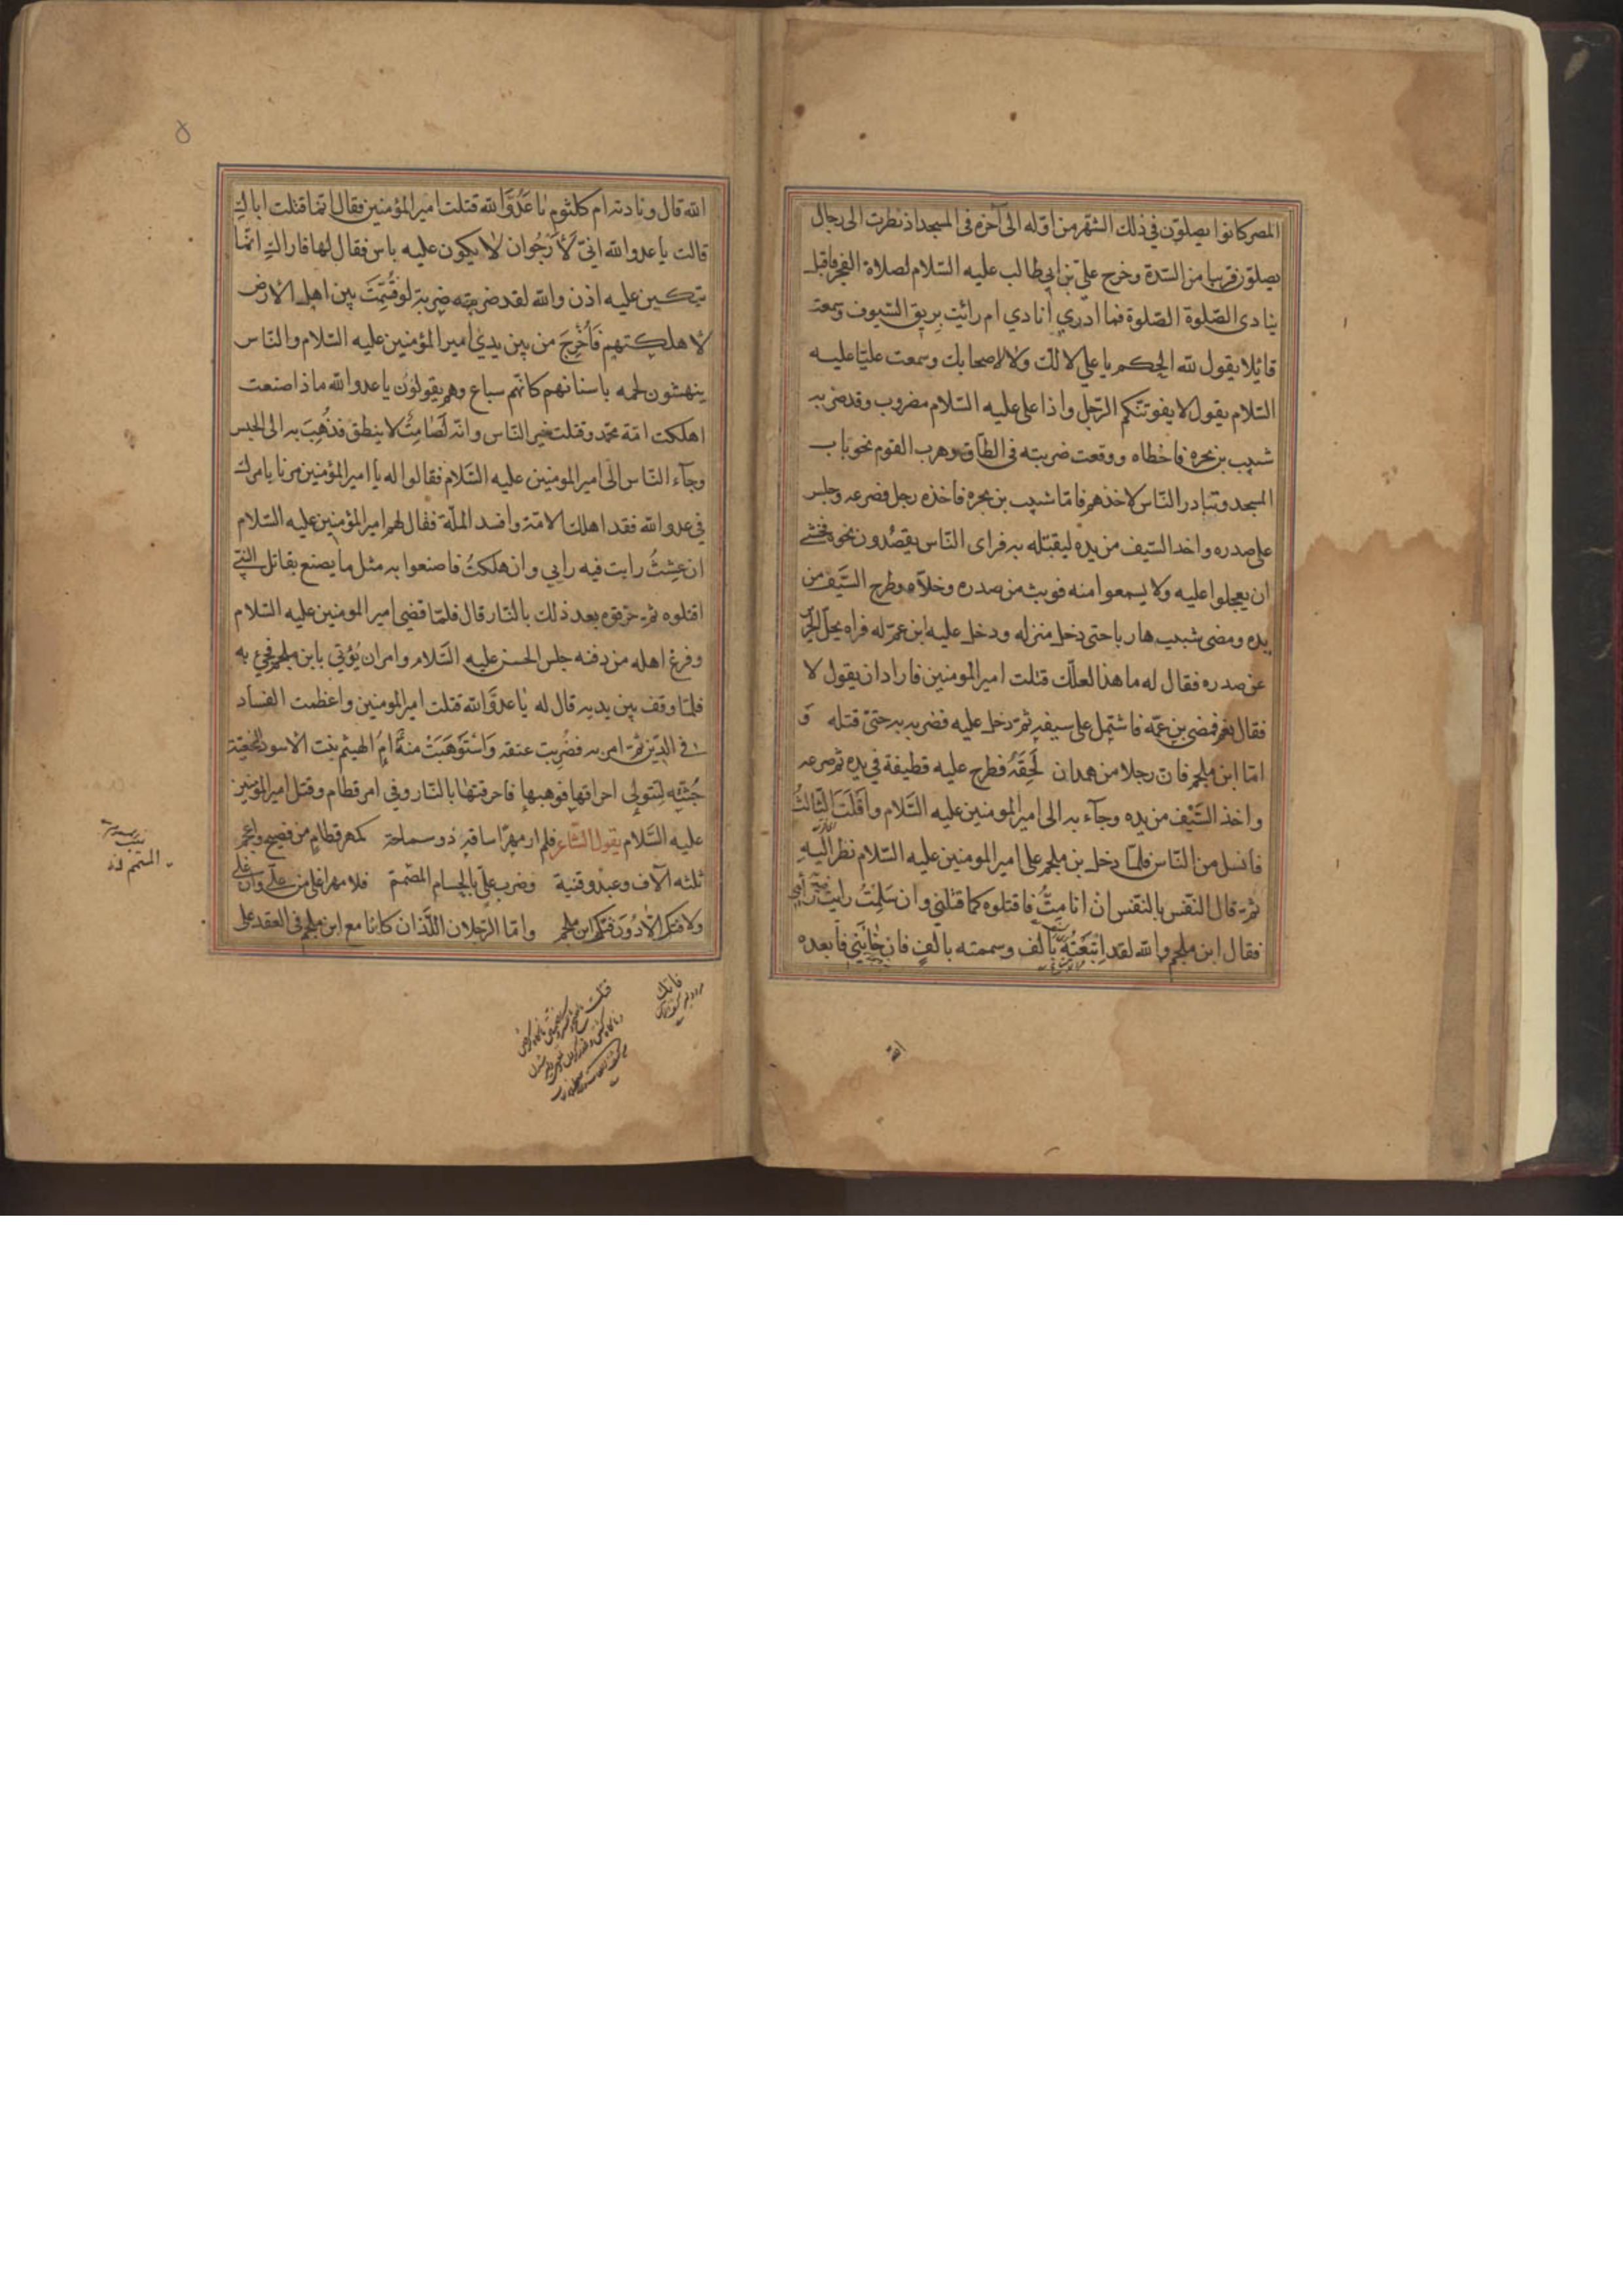 المصر كانوا يصلون في ذلك الشهر من اوله الى آخره فى المسجد اذ نظرت الى رجال
يصلون قريبا من السّدة وخرج علىّ بن ابى طالب عليه السّلام لصلاة الفجر فاقبل
ينادى الصّلوة الصّلوة فما ادري انادي ام رائيت بريق السّيوف وسمعت
قائلا يقول لله الحكم يا علي لا لك ولا لاصحابك وسمعت عليّا عليه
السّلام يقول لا يفوتنّكم الرّجل واذا على عليه السّلام مضروب وقد ضربه
شبيب بن بحره فاخطاه ووقعت ضربته فى الطّاق وهرب القوم نحو باب
المسجد وتبادر النّاس لاخذهم فامّا شبيب بن بجره فاخذه رجل فصرعه وجلس
على صدره واخد السّيف من يده ليقتله به فراى النّاس يقصُدون نحوه فخشے
ان يعجلوا عليه ولا يسمعوا منه فوبث من صدره وخلّاه وطرح السَّيف من
يده ومضى شبيب هاربا حتى دخل منزله ودخل عليه ابن عمّ له فراه يحلّ الحرير
عن صدره فقال له ما هذا لعلّك قتلت امير المومنين فاراد ان يقول لا
فقال نعم فمضى بن عمّه فاشتمل على سيفه ثمّ دخل عليه فضربه به حتىّ قتله وَ
امّا ابن ملجم فانّ رجلا من همدان لَحِقَهُ فطرح عليه قطيفة في يده ثم صرعه
واخذ السَّيْف من يده وجآء به الى امير المومنين عليه السَّلام واَفْلَتَ الثّالثُ
فانسل من النّاس فلمّا دخل بن ملجم على امير المومنين عليه السّلام نظر اليه
ثمّ قال النّفس بالنّفس انْ انا مِتُّ فاقتلوه كما قتلنى وان سَلِمْتُ رايت فيه رأيي
فقال ابن ملجم والله لقد اِبْتَعْتُهُ بألف وسممته بالفٍ فان خٰانَني فأبعده
الله
الله قال ونادته ام كلثوم يٰا عَدُوَّ الله قتلت امير المؤمنين فقال انّما قتلت اباكِ
قالت يا عدو الله انيّ لَأَرْجُوا ان لٰا يكون عليه باس فقال لها فاراكِ انّما
تبكين عليه اذن والله لقد ضربته ضربة لو قُسِّمَتَ بين اهل الارض
لأهلكتهم فَاُخْرِجَ من بين يديْ امير المؤمنين عليه السّلام والنّاس
ينهشون لحمه باسنانهم كانّهم سباع وهم يقولوُن يا عدو الله ماذا صنعت
اهلكت امّة محمّد وقتلت خير النّاس وانّه لَصٰامِتٌ لا ينطق فذُهِبَ به الى الحبس
وجآء النّاس الى امير المومنين عليه السَّلام فقالوا له يا امير المؤمنين مرنا بامرك
في عدو الله فقد اهلك الامّة وافسد الملّة فقال لهم امير المؤمنين عليه السّلام
ان عِشْتُ رايت فيه رايي وان هلكتُ فاصنعوا به مثل ما يصنع بقاتل النبّي
اقتلوه ثمّ حرّقوه بعد ذلك بالنّار قال فلمّا قضى امير المومنين عليه السّلام
وفرغ اهله من دفنه جلس الحسن عليه السَّلام وامر ان يُؤتى بابن ملجم فجئ به
فلمّا وقف بين يديه قال له يٰا عدوَّ الله قتلت امير المومنين واعظمت الفساد
فى الدّين ثمّ امر به فضُربت عنقه وَاسْتَوْهَبَتْ منهُ اُمُ الهيثم بنت الاسود النخعيّة
جُثّتِه لِتتولى احراقها فوهبها فاحرقتها بالنّار وفى امر قطام وقتل امير المؤمنين
عليه السَّلام يقول الشّاعر فلم ار مهرًا ساقه ذو سماحة كمهر قطامٍ من فصيح واعجم
ثلثه آلاف وعبد وقنية وضرب علىّ بالحسام المصّمم فلا مهر اغلى من علىّ وان غلى
ولا فتك الّا دُون فتك ابن ملجم وامّا الرّجلان اللّذان كانٰا مع ابن ملجم فى العقد على